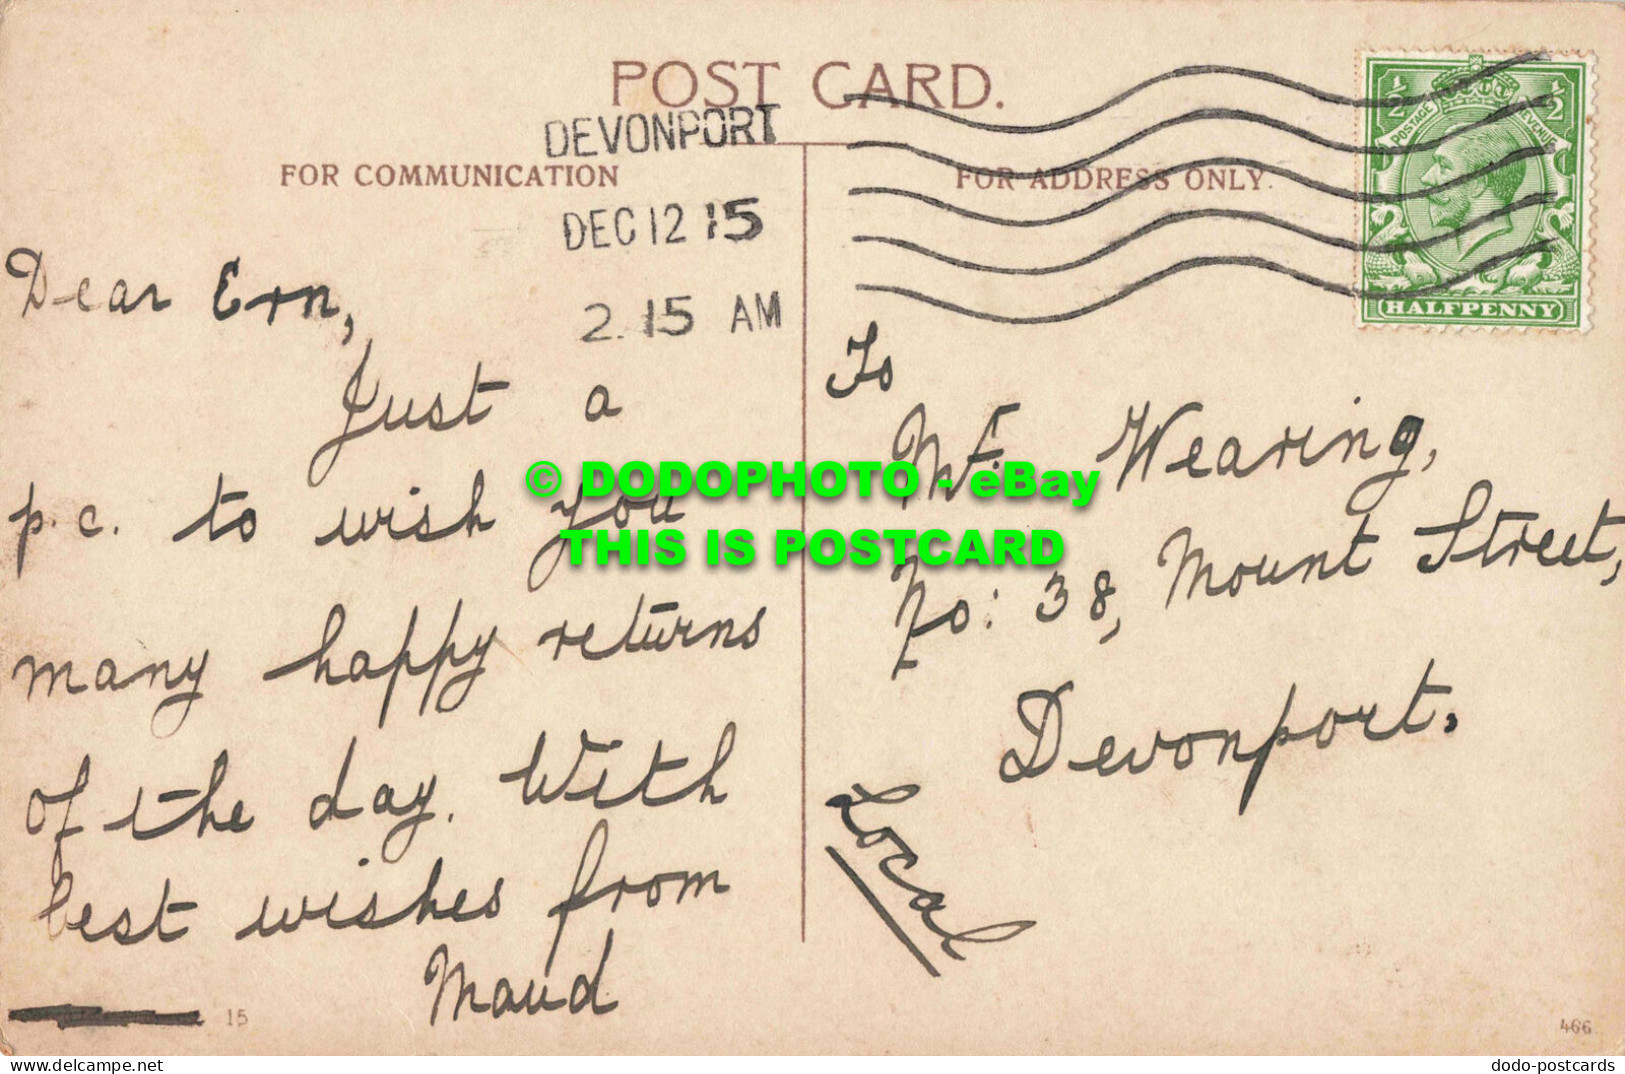 POST CARD.
DEVONPORT
FOR COMMUNICATION
FOR ADDRESS ONLY.
DEC 12 15
2. 15 AM
½ ½
POSTAGE REVENUE
HALFPENNY
Dear Ern,
Just a
p.c. to wish you
many happy returns
of the day. With
best wishes from
Maud
15
To
Mr. Wearing,
No: 38, Mount Street,
Devonport.
Local
466
© DODOPHOTO - eBay
THIS IS POSTCARD
Visit us at www.delcampe.net
dodo-postcards